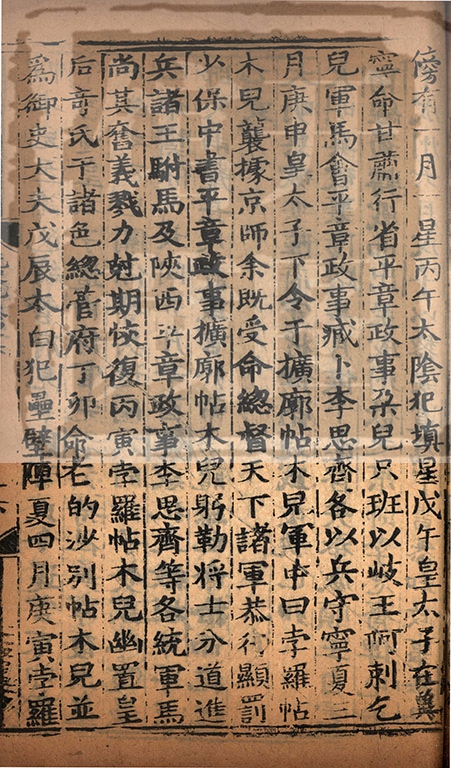 傍有一月一星丙午太陰犯填星戊午皇太子在兾
寧命甘肅行省平章政事朶兒只班以岐王阿剌乞
兒軍馬會平章政事臧卜李思齊各以兵守寧夏三
月庚申皇太子下令于擴廓帖木兒軍中曰孛羅帖
木兒襲據京師余既受命總督天下諸軍恭行顯罰
少保中書平章政事擴廓帖木兒躬勒将士分道進
兵諸王駙馬及陝西平章政事李思齊等各統軍馬
尚其奮義戮力尅期恢復丙寅孛羅帖木兒幽置皇
后竒氏于諸色總管府丁卯命老的沙别帖木兒並
爲御史大夫戊辰太白犯壘壁陣夏四月庚寅孛羅